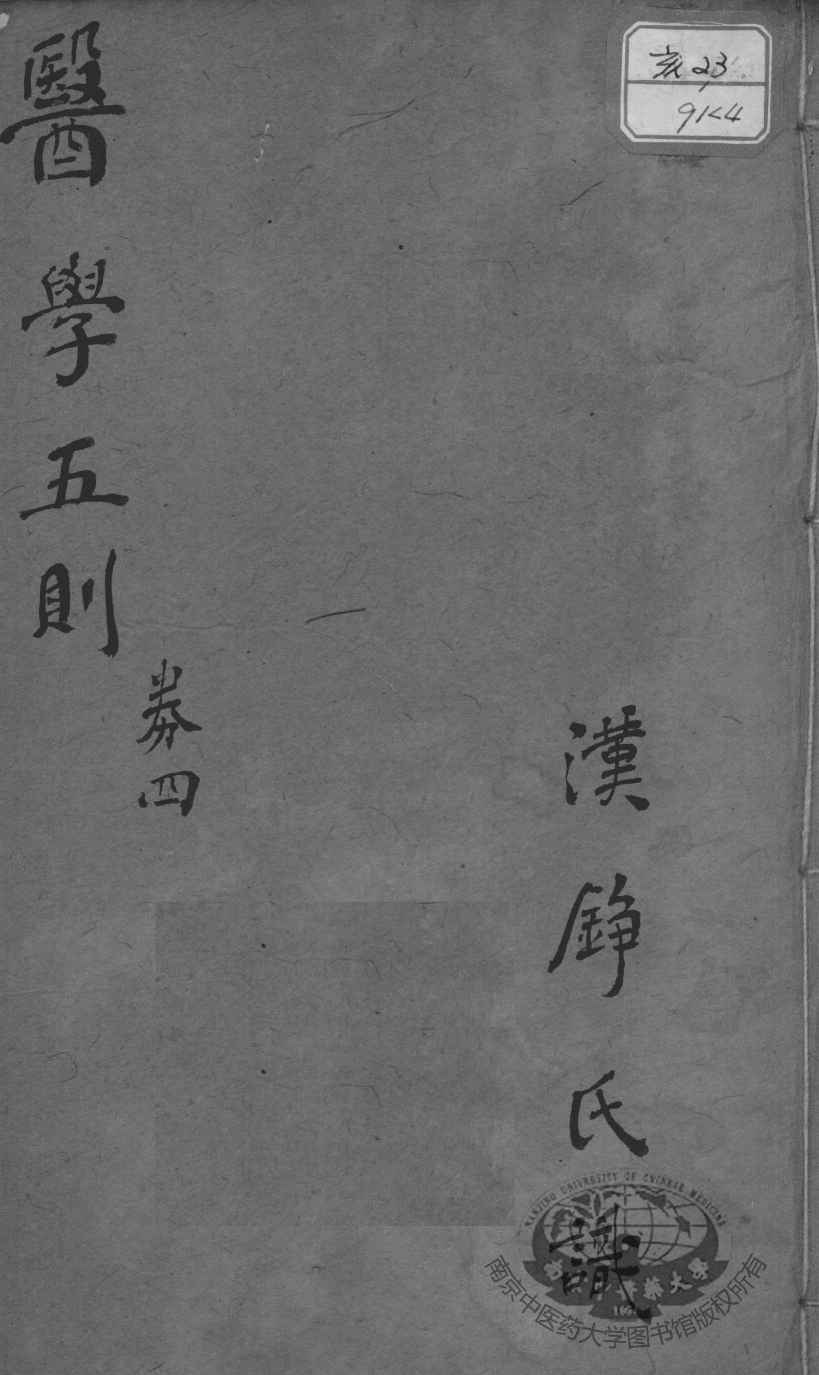 亥23
91<4
漢錚氏識
醫學五則
券四
NANJING UNIVERSITY OF CHINESE MEDICINE
南京中医药大学图书馆版权所有